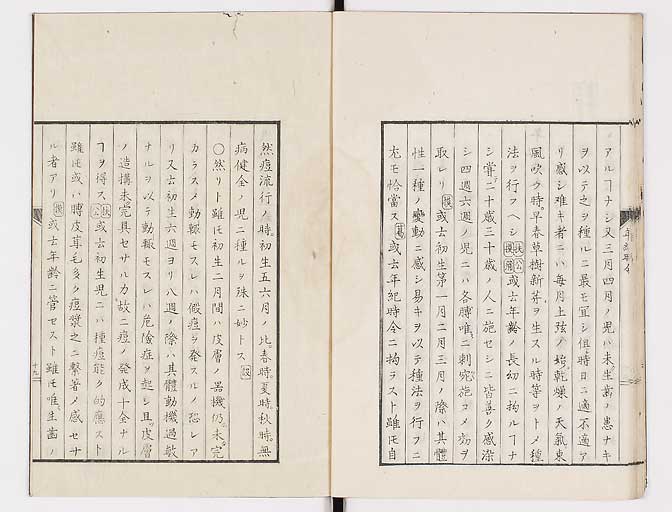 アルヿナシ又三月四月ノ児ハ未生歯ノ患ナキ
ヲ以テ之ヲ種ルニ最モ宜シ但時日ニ適不適ア
リ感シ难キ者ニハ毎月上弦ノ始乾燥ノ天氣東
風吹ク時早春草樹新芽ヲ生スル時等ヲトメ種
法ヲ行フヘシ 或云年齢ノ長幼ニ拘ルヿナ
シ嘗ニ二十歳三十歳ノ人ニ施セシニ皆善ク感染
シ四週六週ノ児ニハ各膊唯二刺宛施コメ効ヲ
取レリ 或云初生第一月二月三月ノ際ハ其體
性一種ノ變動ニ感シ易キヲ以テ種法ヲ行フニ
尤モ恰當ス 或云年紀時令ニ拘ラスト雖モ自
然痘流行ノ時初生五六月ノ比春時夏時秋時無
病健全ノ児ニ種ルヲ殊ニ妙トス
〇然リト雖モ初生二月間ハ皮膚ノ器機仍未完
カラスメ動輙モスレハ假痘ヲ発スルノ恐レア
リ又云初生六週ヨリ八週ノ際ハ其體動機過敏
ナルヲ以テ動輙モスレハ危險症ヲ起シ且皮膚
ノ造搆未完具セサルカ故ニ痘ノ発成十全ナル
ヿヲ得ス 或云初生児ニハ種痘能ク的應スト
雖モ或ハ膊皮茸毛多ク痘漿之ニ黏著メ感セサ
ル者アリ 或云年齢ニ管セスト雖モ唯生歯ノ
十九